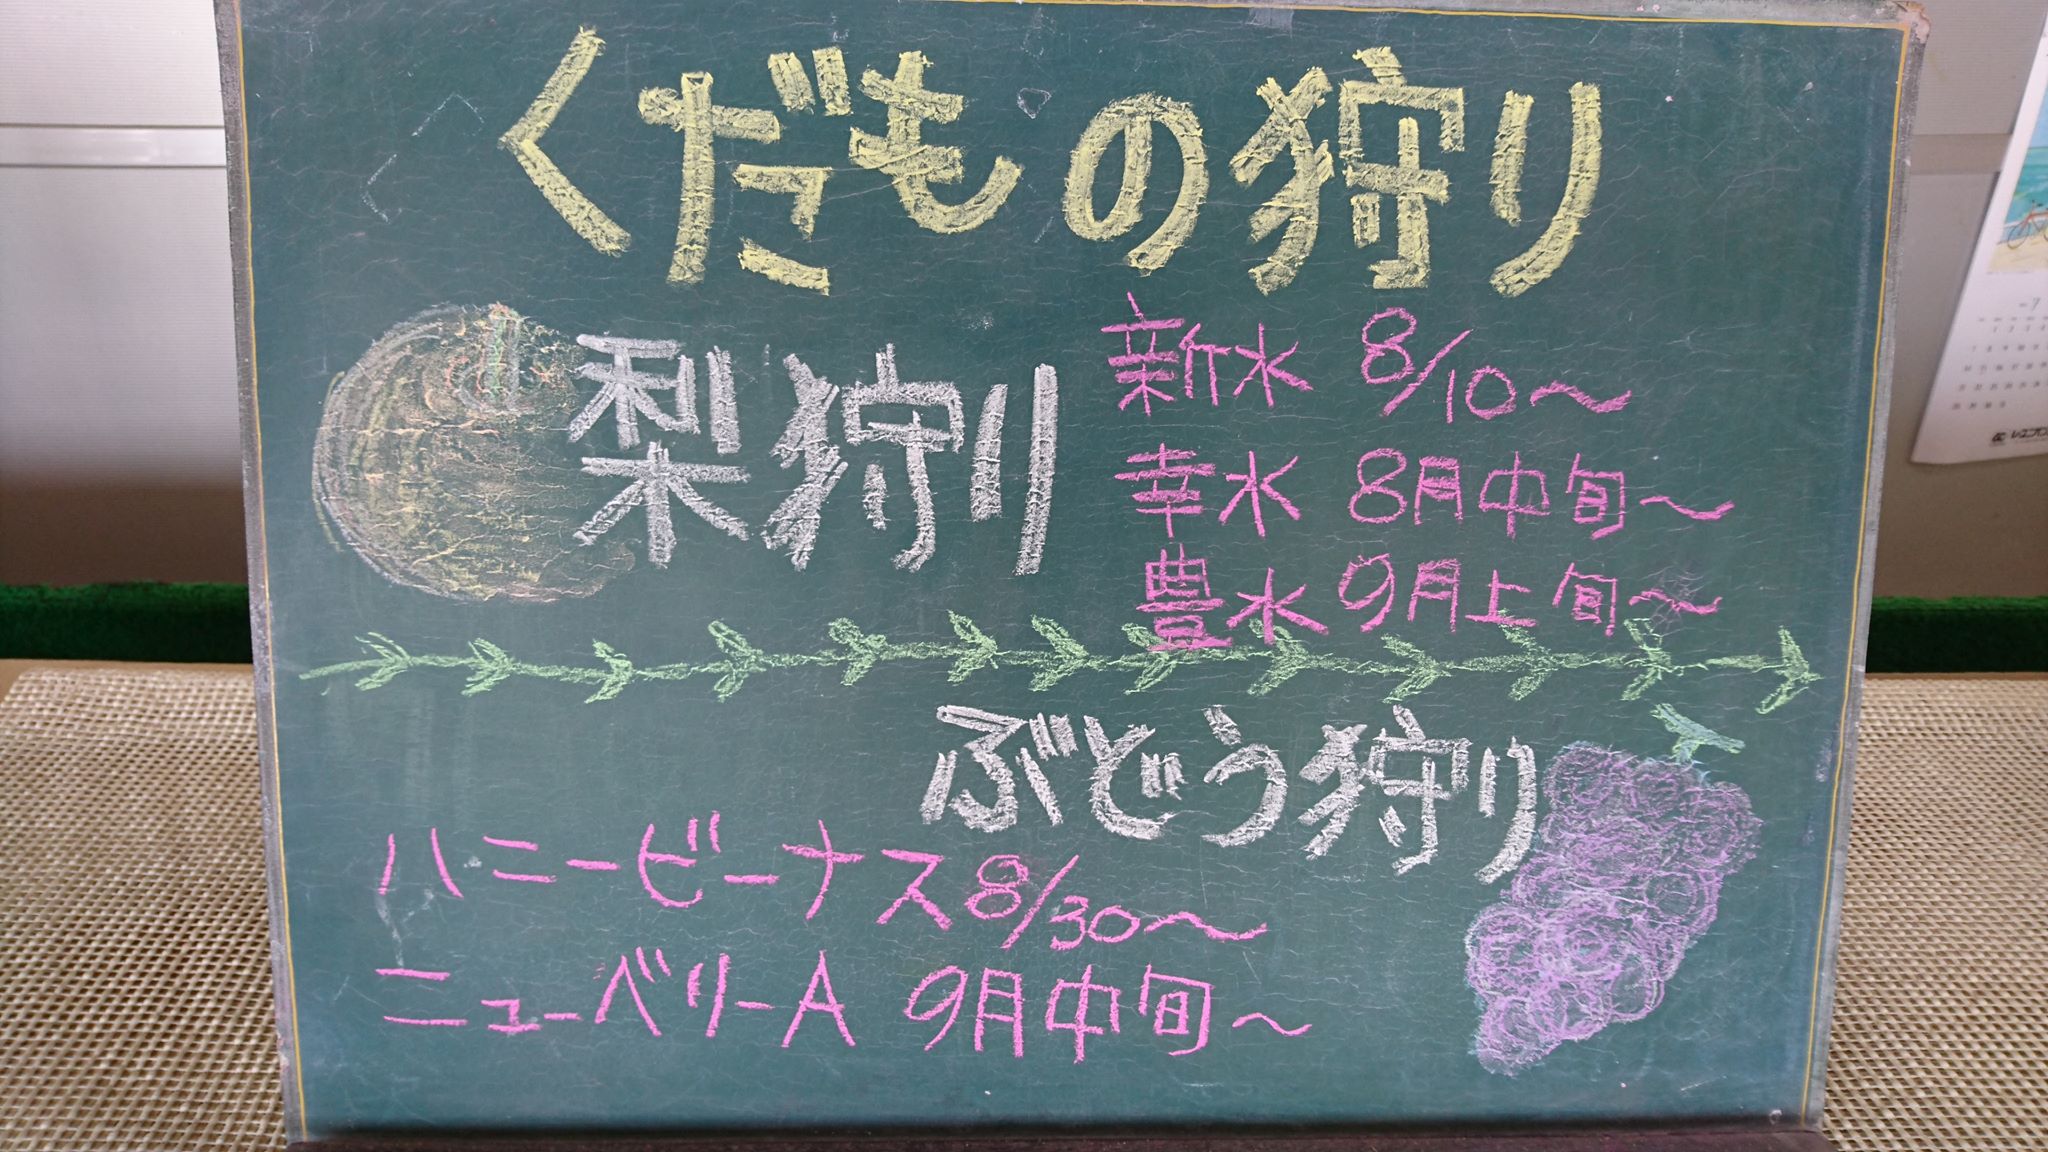 くだもの狩り
梨狩り
新水 8/10〜
幸水 8月中旬〜
豊水 9月上旬〜
ぶどう狩り
ハニービーナス 8/30〜
ニューベリーA 9月中旬〜